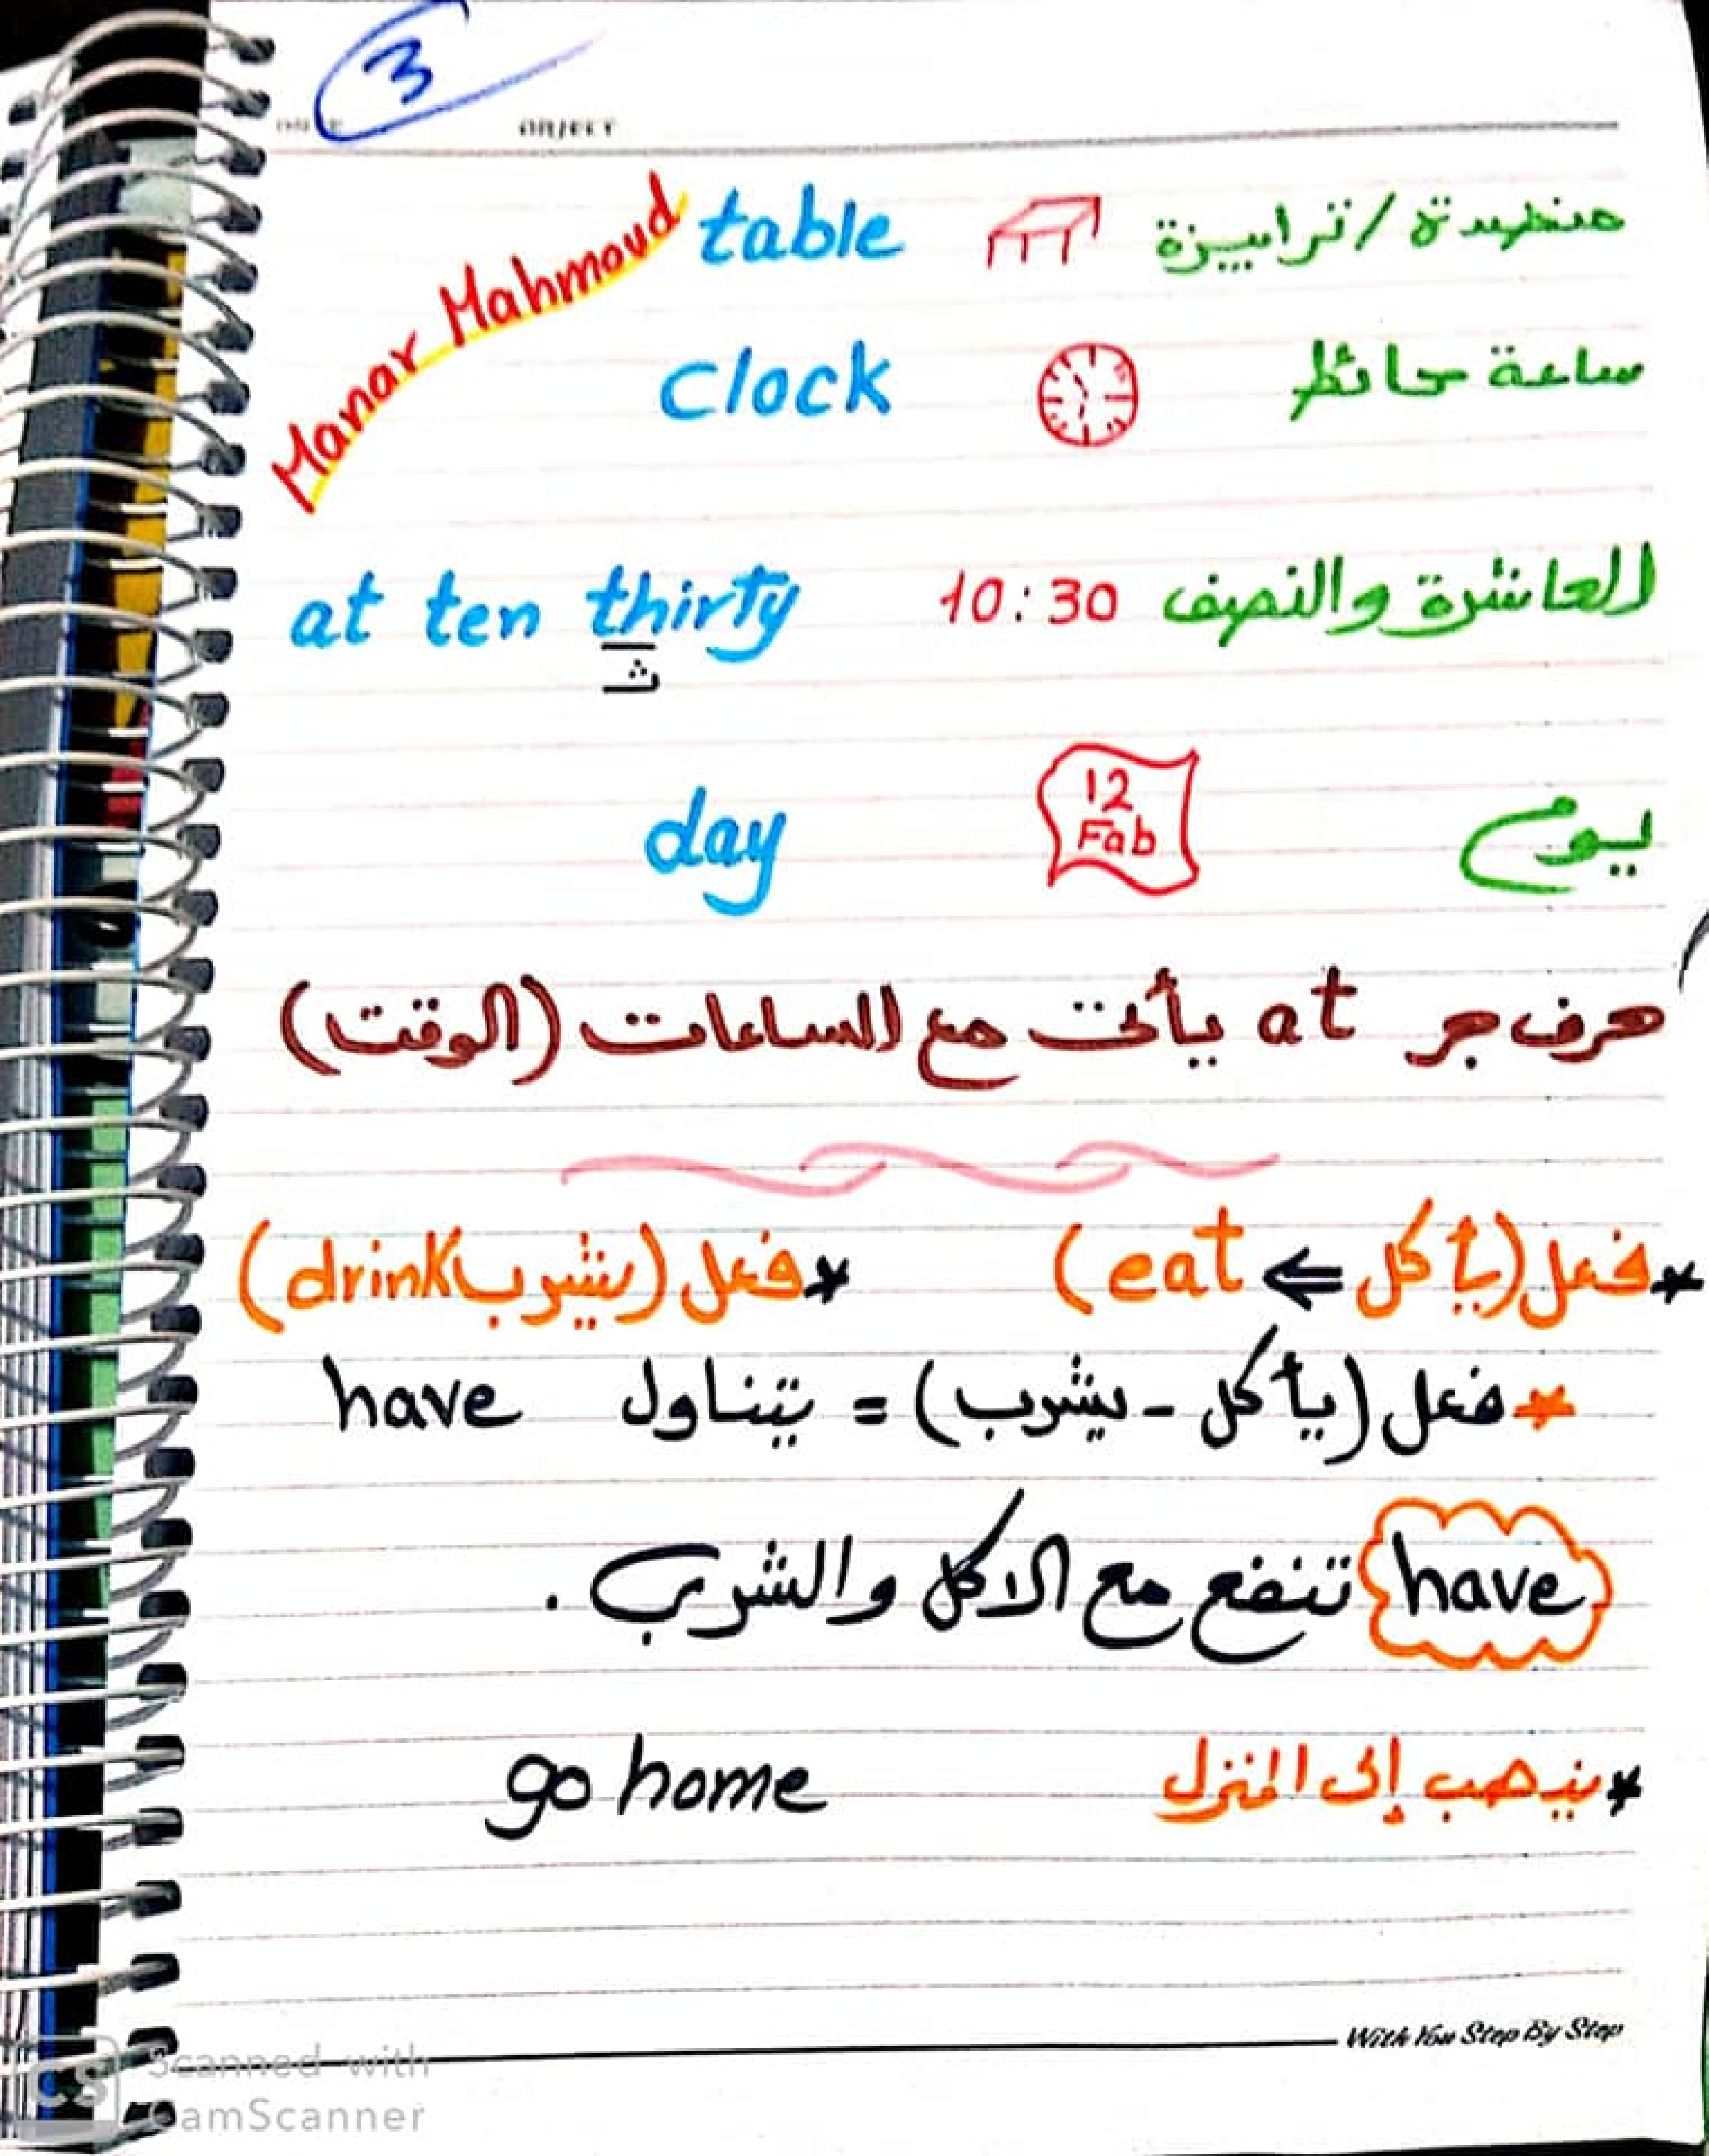 3
OBJECT
Manar Mahmoud
table منضدة / ترابيزة
clock ساعة حائط
at ten thirty 10:30 العاشرة والنصف
ث
day 12 Fab يوم
حرف جر at يأتى مع الساعات (الوقت)
* فعل (يأكل ⇐ eat) * فعل (يشرب drink)
* فعل (يأكل - يشرب) = يتناول have
have تنفع مع الاكل والشرب .
* يذهب إلى المنزل go home
With You Step By Step
CS Scanned with
CamScanner